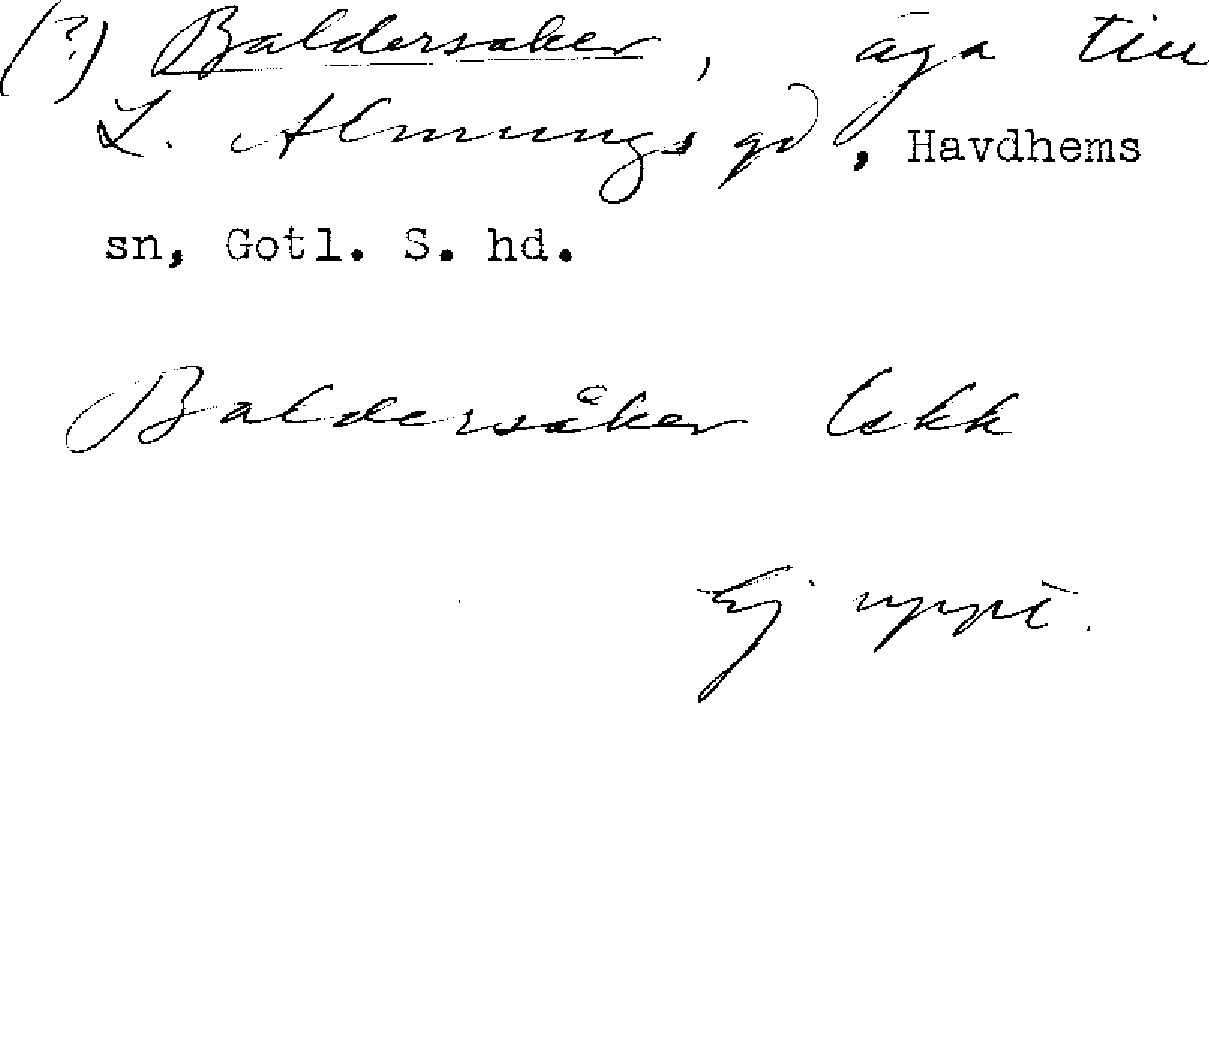 (?) Baldersaker, äga till
L. Almungs gd, Havdhems
sn, Gotl. S. hd.
Baldersåker Lskk
Ej uppt.